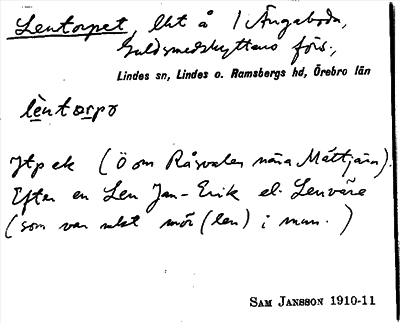 Lentorpet, lht å 1 Ängaboda,
Guldsmedshyttans förs.,
Lindes sn, Lindes o. Ramsbergs hd, Örebro län
lèntorpo
Jtp ek (Ö om Råsvalen nära Måttjärn).
Efter en Len Jan-Erik el. Lenväre
(som var mkt mör (len) i mun.)
SAM JANSSON 1910-11